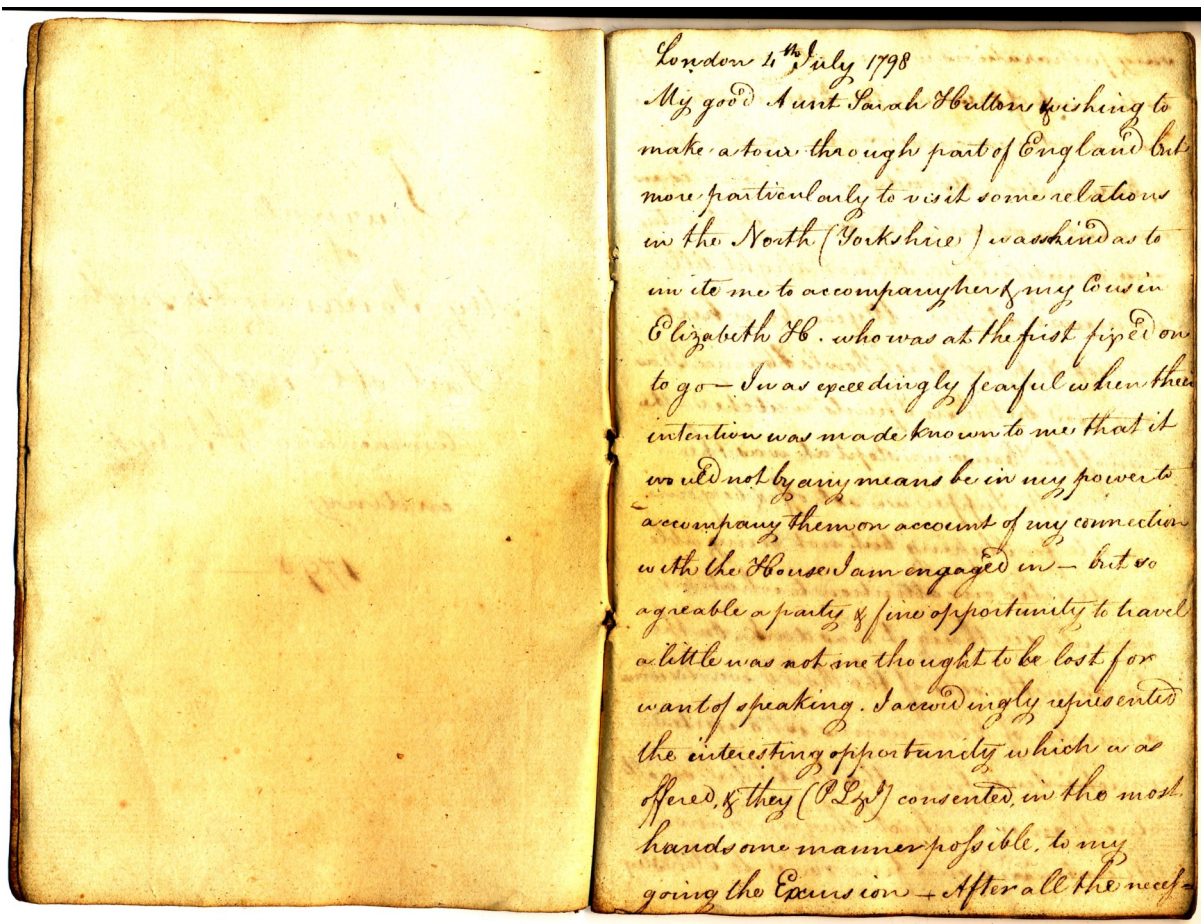 London 4th July 1798
My good Aunt Sarah Hutton wishing to
make a tour through part of England but
more particularly to visit some relations
in the North (Yorkshire) was kind as to
invite me to accompany her & my Cousin
Elizabeth H. who was at the first fixed on
to go — I was exceedingly fearful when their
intention was made known to me that it
would not by any means be in my power to
accompany them on account of my connection
with the House I am engaged in — but so
agreable a party & fine opportunity to travel
a little was not me thought to be lost for
want of speaking. I accordingly represented
the interesting opportunity which was
offered, & they (PL&J) consented, in the most
handsome manner possible, to my
going the Excursion — After all the necess-
1798